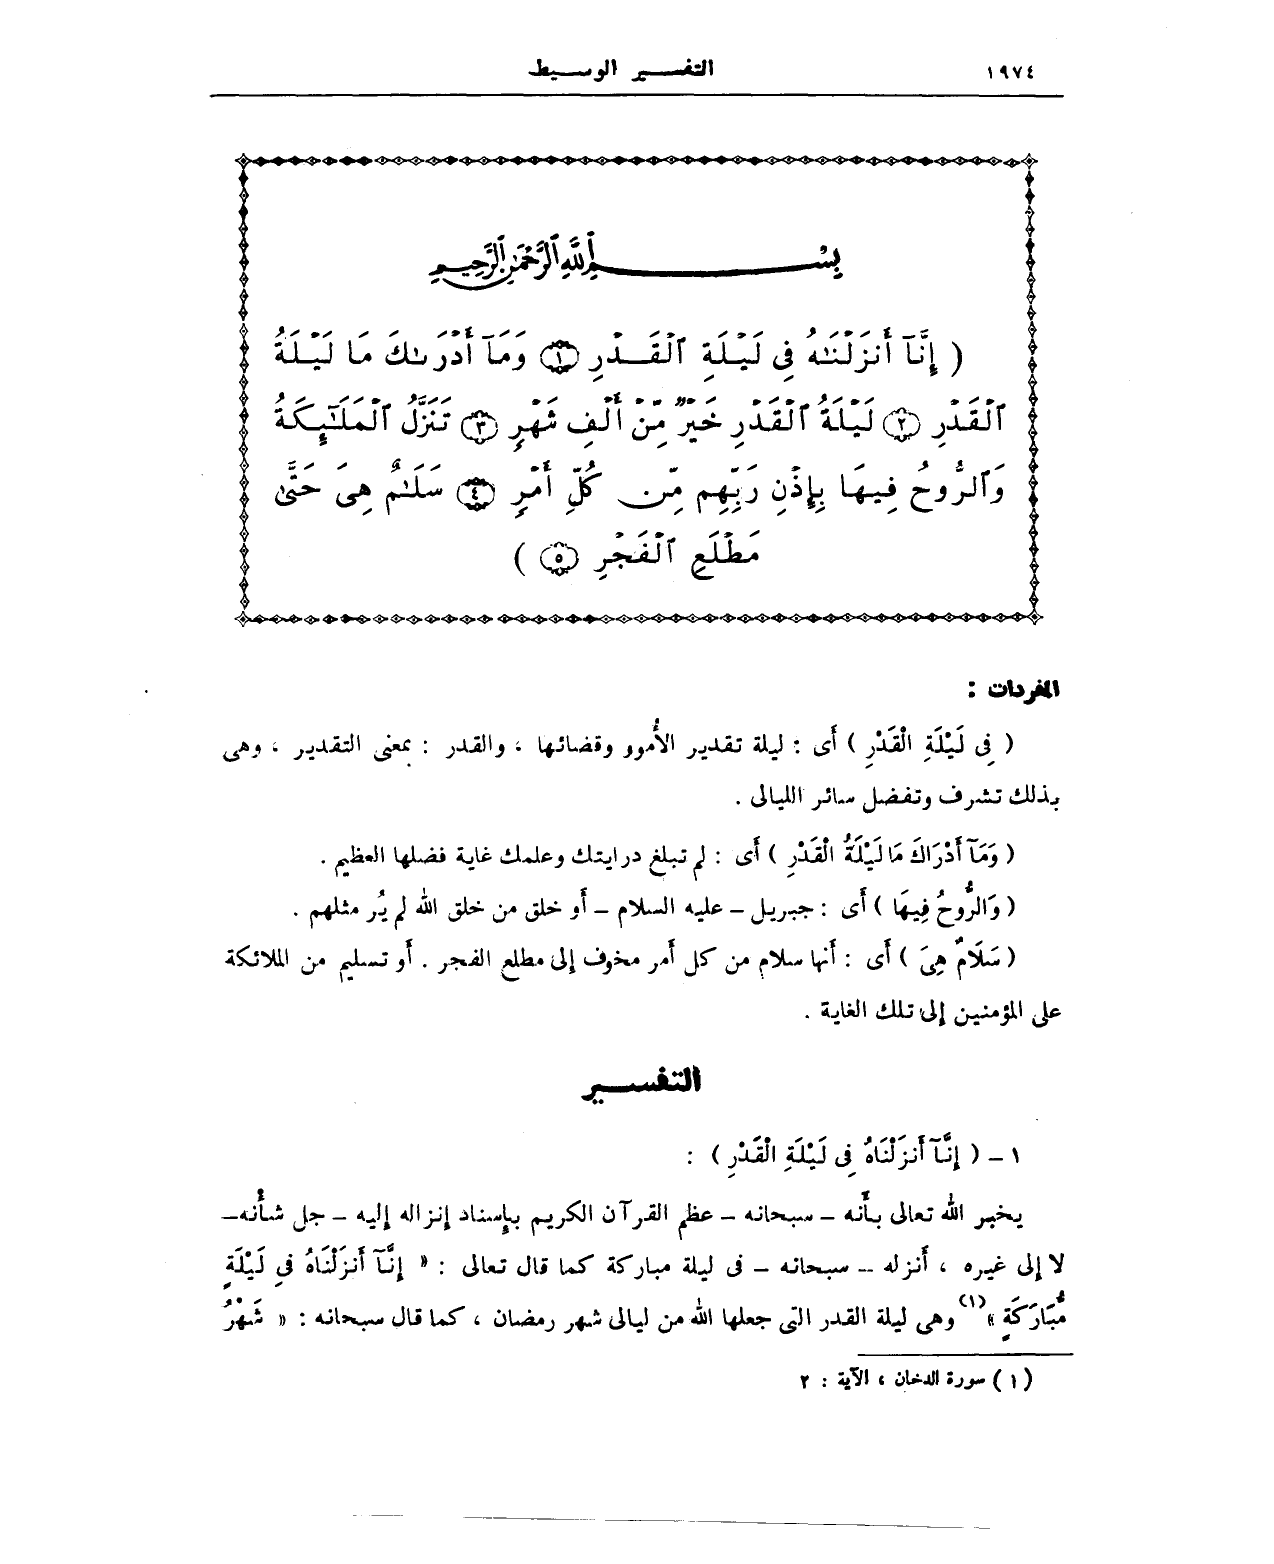 ١٩٧٤
التفسير الوسيط
بِسْمِ ٱللَّهِ ٱلرَّحْمَٰنِ ٱلرَّحِيمِ
( إِنَّآ أَنزَلْنَٰهُ فِى لَيْلَةِ ٱلْقَدْرِ ١ وَمَآ أَدْرَىٰكَ مَا لَيْلَةُ
ٱلْقَدْرِ ٢ لَيْلَةُ ٱلْقَدْرِ خَيْرٌ مِّنْ أَلْفِ شَهْرٍ ٣ تَنَزَّلُ ٱلْمَلَٰٓئِكَةُ
وَٱلرُّوحُ فِيهَا بِإِذْنِ رَبِّهِم مِّن كُلِّ أَمْرٍ ٤ سَلَٰمٌ هِىَ حَتَّىٰ
مَطْلَعِ ٱلْفَجْرِ ٥ )
المفردات :
( فِى لَيْلَةِ الْقَدْرِ ) أَى : ليلة تقدير الأُموو وقضائها ، والقدر : بمعنى التقدير ، وهى
بذلك تشرف وتفضل سائر الليالى .
( وَمَآ أَدْرَاكَ مَا لَيْلَةُ الْقَدْرِ ) أَى : لم تبلغ درايتك وعلمك غاية فضلها العظيم .
( وَالرُّوحُ فِيهَا ) أَى : جبريل – عليه السلام – أَو خلق من خلق الله لم يُر مثلهم .
( سَلَامٌ هِىَ ) أَى : أَنها سلام من كل أَمر مخوف إلى مطلع الفجر . أَو تسليم من الملائكة
على المؤمنين إلى تلك الغاية .
التفسير
١ – ( إِنَّآ أَنزَلْنَاهُ فِى لَيْلَةِ الْقَدْرِ ) :
يخبر الله تعالى بأَنه – سبحانه – عظم القرآن الكريم بإسناد إنزاله إليه – جل شأْنه–
لا إلى غيره ، أَنزله – سبحانه – فى ليلة مباركة كما قال تعالى : « إِنَّآ أَنزَلْنَاهُ فِى لَيْلَةٍ
مُّبَارَكَةٍ » (١) وهى ليلة القدر التى جعلها الله من ليالى شهر رمضان ، كما قال سبحانه : « شَهْرُ
(١) سورة الدخان ، الآية : ٢